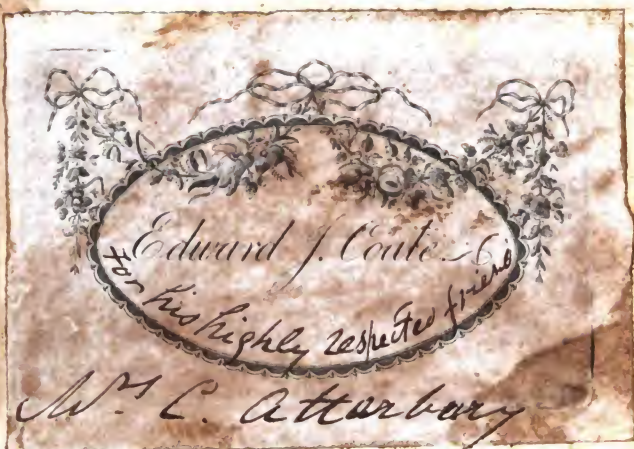 Edward J. Coale
For his highly respected friend
Mrs C. Atterbury